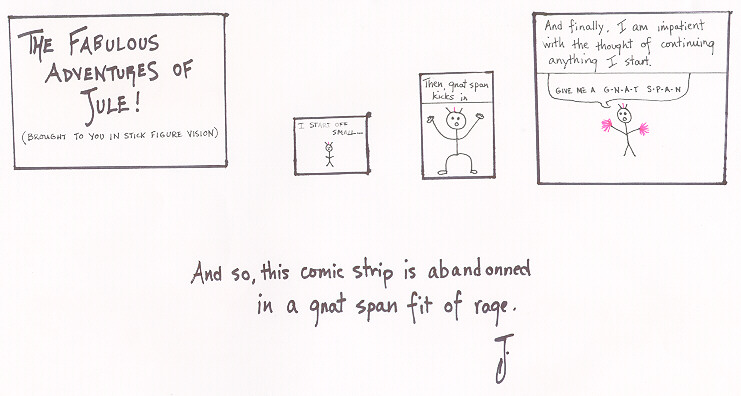 THE FABULOUS
ADVENTURES OF
JULE!
(BROUGHT TO YOU IN STICK FIGURE VISION)
I START OFF
SMALL....
Then, gnat span
kicks in
And finally, I am impatient
with the thought of continuing
anything I start.
GIVE ME A G-N-A-T S-P-A-N
And so, this comic strip is abandonned
in a gnat span fit of rage.
J.